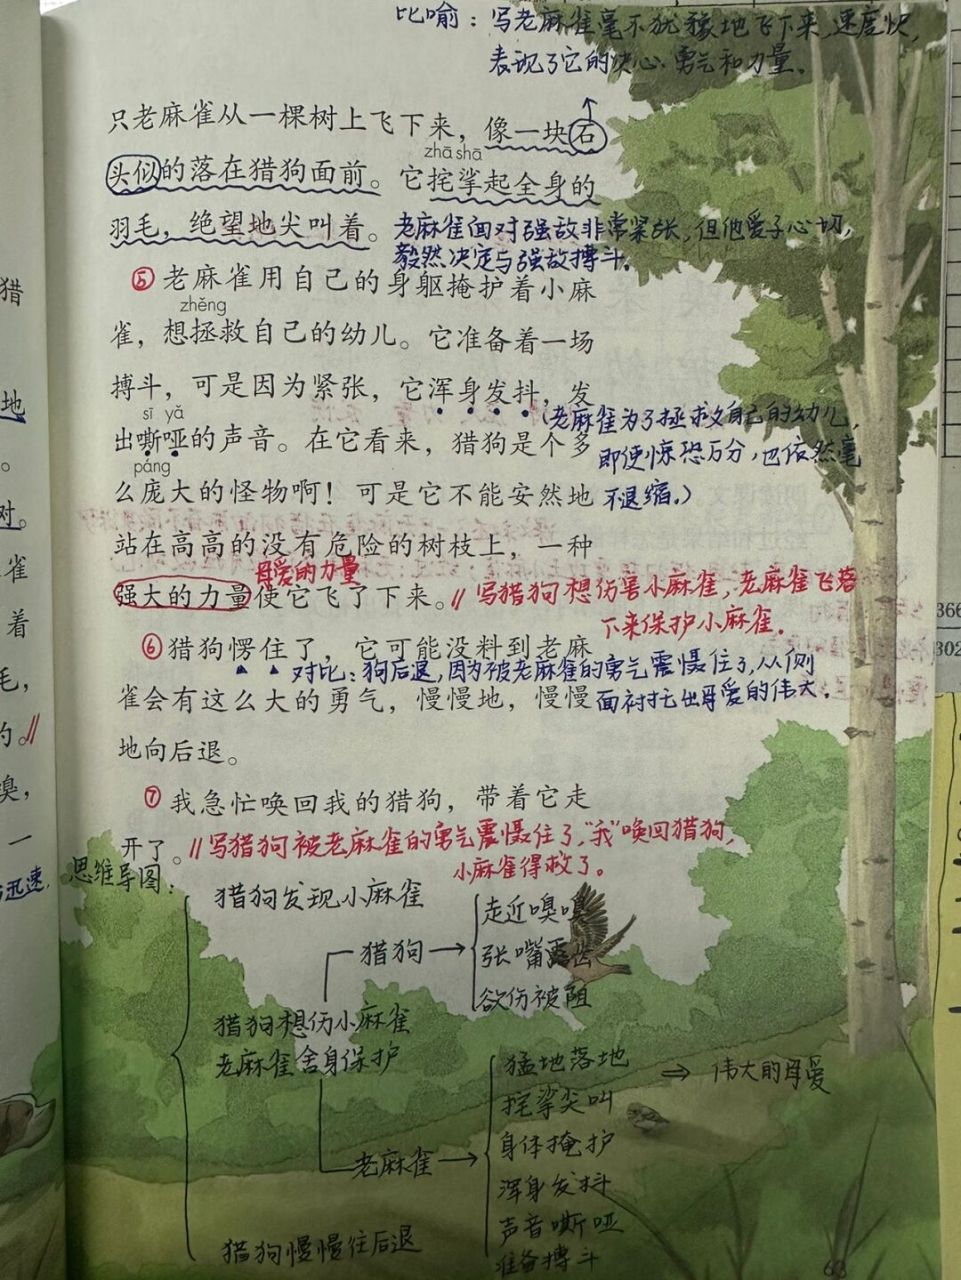 比喻：写老麻雀毫不犹豫地飞下来，速度快，
表现了它的决心、勇气和力量。
只老麻雀从一棵树上飞下来，像一块石
zhā shā
头似的落在猎狗面前。它挓挲起全身的
羽毛，绝望地尖叫着。
老麻雀面对强敌非常紧张，但他爱子心切，
毅然决定与强敌搏斗。
⑤老麻雀用自己的身躯掩护着小麻
zhěng
雀，想拯救自己的幼儿。它准备着一场
搏斗，可是因为紧张，它浑身发抖，发
sī yǎ
出嘶哑的声音。在它看来，猎狗是个多
（老麻雀为了拯救自己的幼儿，
即使惊恐万分，也依然毫
不退缩。）
páng
么庞大的怪物啊！可是它不能安然地
站在高高的没有危险的树枝上，一种
母爱的力量
强大的力量使它飞了下来。
//写猎狗想伤害小麻雀，老麻雀飞落
下来保护小麻雀．
⑥猎狗愣住了，它可能没料到老麻
对比：狗后退，因为被老麻雀的勇气震慑住了，从侧
面衬托出母爱的伟大．
雀会有这么大的勇气，慢慢地，慢慢
地向后退。
⑦我急忙唤回我的猎狗，带着它走
开了。
//写猎狗被老麻雀的勇气震慑住了，“我”唤回猎狗，
小麻雀得救了。
思维导图：
猎狗发现小麻雀
猎狗
走近嗅嗅
张嘴露齿
欲伤被阻
猎狗想伤小麻雀
老麻雀舍身保护
老麻雀
猛地落地
挓挲尖叫
身体掩护
浑身发抖
声音嘶哑
准备搏斗
⇒ 伟大的母爱
猎狗慢慢往后退
猎
地
。
对。
雀
着
毛，
的。//
嗅，
一
迅速．